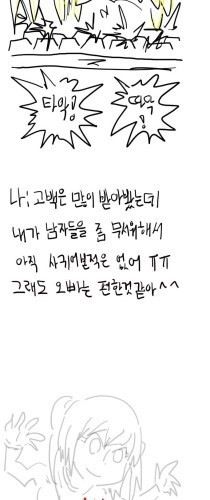 타악!
따악!
나, 고백은 많이 받아봤는데
내가 남자들을 좀 무서워해서
아직 사귀어본적은 없어 ㅠㅠ
그래도 오빠는 편한것같아^^